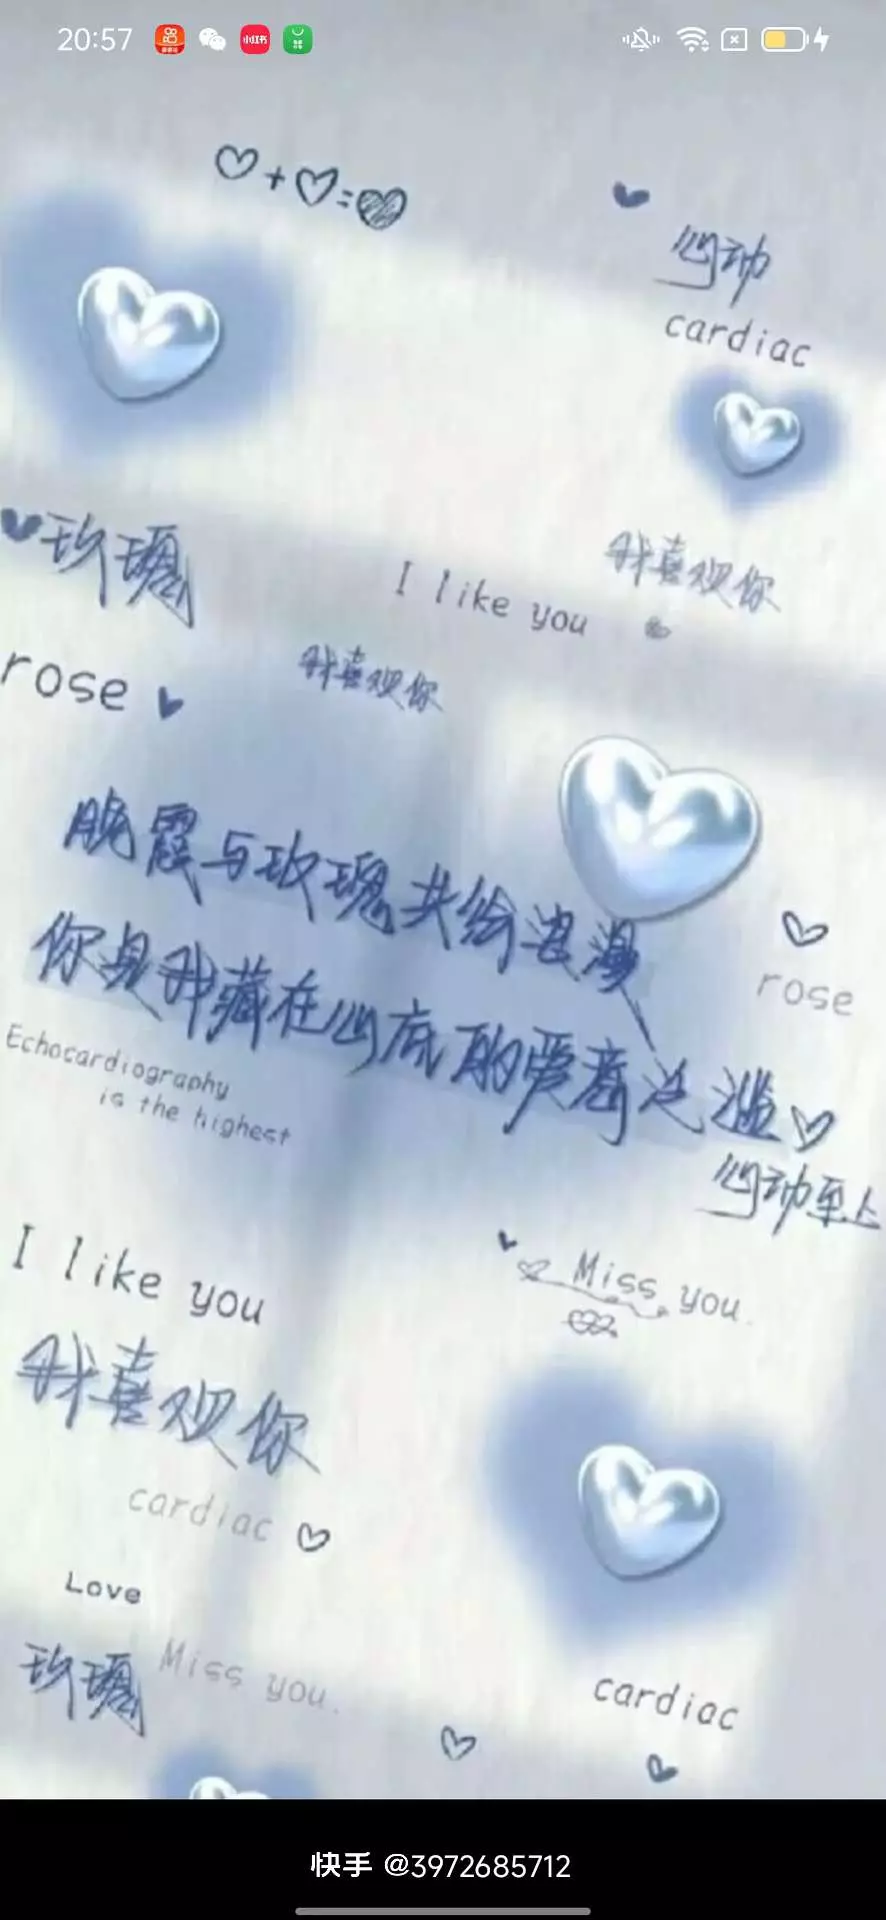 20:57
小红书
心动
cardiac
玫瑰
我喜欢你
I like you
rose
我喜欢你
晚霞与玫瑰共绘浪漫
你是我藏在心底的爱意泛滥
rose
Echocardiography
is the highest
心动至上
I like you
Miss you.
我喜欢你
cardiac
Love
玫瑰
Miss you.
cardiac
快手 @3972685712